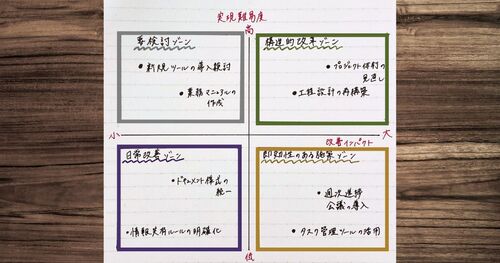 実現難易度
高
要検討ゾーン
・新規ツールの導入検討
・業務マニュアルの
作成
構造的改革ゾーン
・プロジェクト体制の
見直し
・工程設計の再構築
小
大
改善インパクト
日常改善ゾーン
・ドキュメント様式の
統一
・情報共有ルールの明確化
即効性のある施策ゾーン
・週次進捗
会議の導入
・タスク管理ツールの活用
低